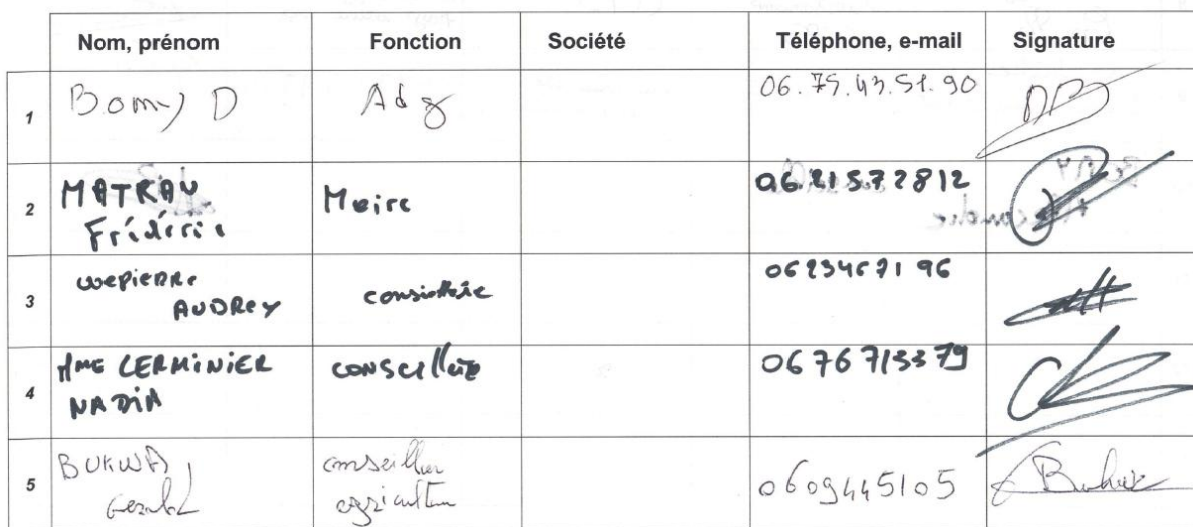 Nom, prénom Fonction Société Téléphone, e-mail Signature
1 Bomy D Adj 06.75.43.51.90
2 MATRAU Frédéric Maire 06 21 57 28 12
3 WEPIERRE AUDREY conseillère 06 23 46 71 96
4 Mme LERMINIER NADIA conseillère 06 76 71 33 79
5 conseiller agriculteur 06 09 44 51 05